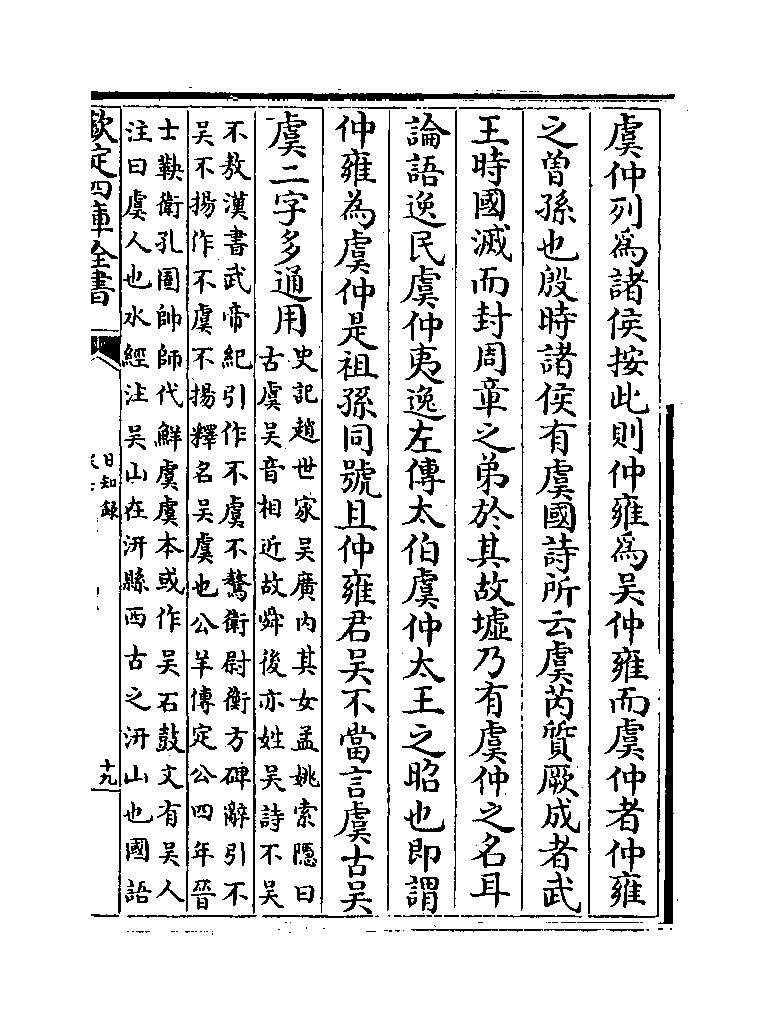 虞仲列爲諸侯按此則仲雍爲吴仲雍而虞仲者仲雍
之曽孫也殷時諸侯有虞國詩所云虞芮質厥成者武
王時國滅而封周章之弟於其故墟乃有虞仲之名耳
論語逸民虞仲夷逸左傳太伯虞仲太王之昭也即謂
仲雍為虞仲是祖孫同號且仲雍君吴不當言虞古吴
虞二字多通用
史記趙世家吴廣内其女孟姚索隱曰
古虞吴音相近故舜後亦姓吴詩不吴
不敖漢書武帝紀引作不虞不驁衛尉衡方碑辭引不
吴不揚作不虞不揚釋名吴虞也公羊傳定公四年晉
士鞅衛孔圄帥師代鮮虞虞本或作吴石鼓文有吴人
注曰虞人也水經注吴山在汧縣西古之汧山也國語
欽定四庫全書
日知錄
十九